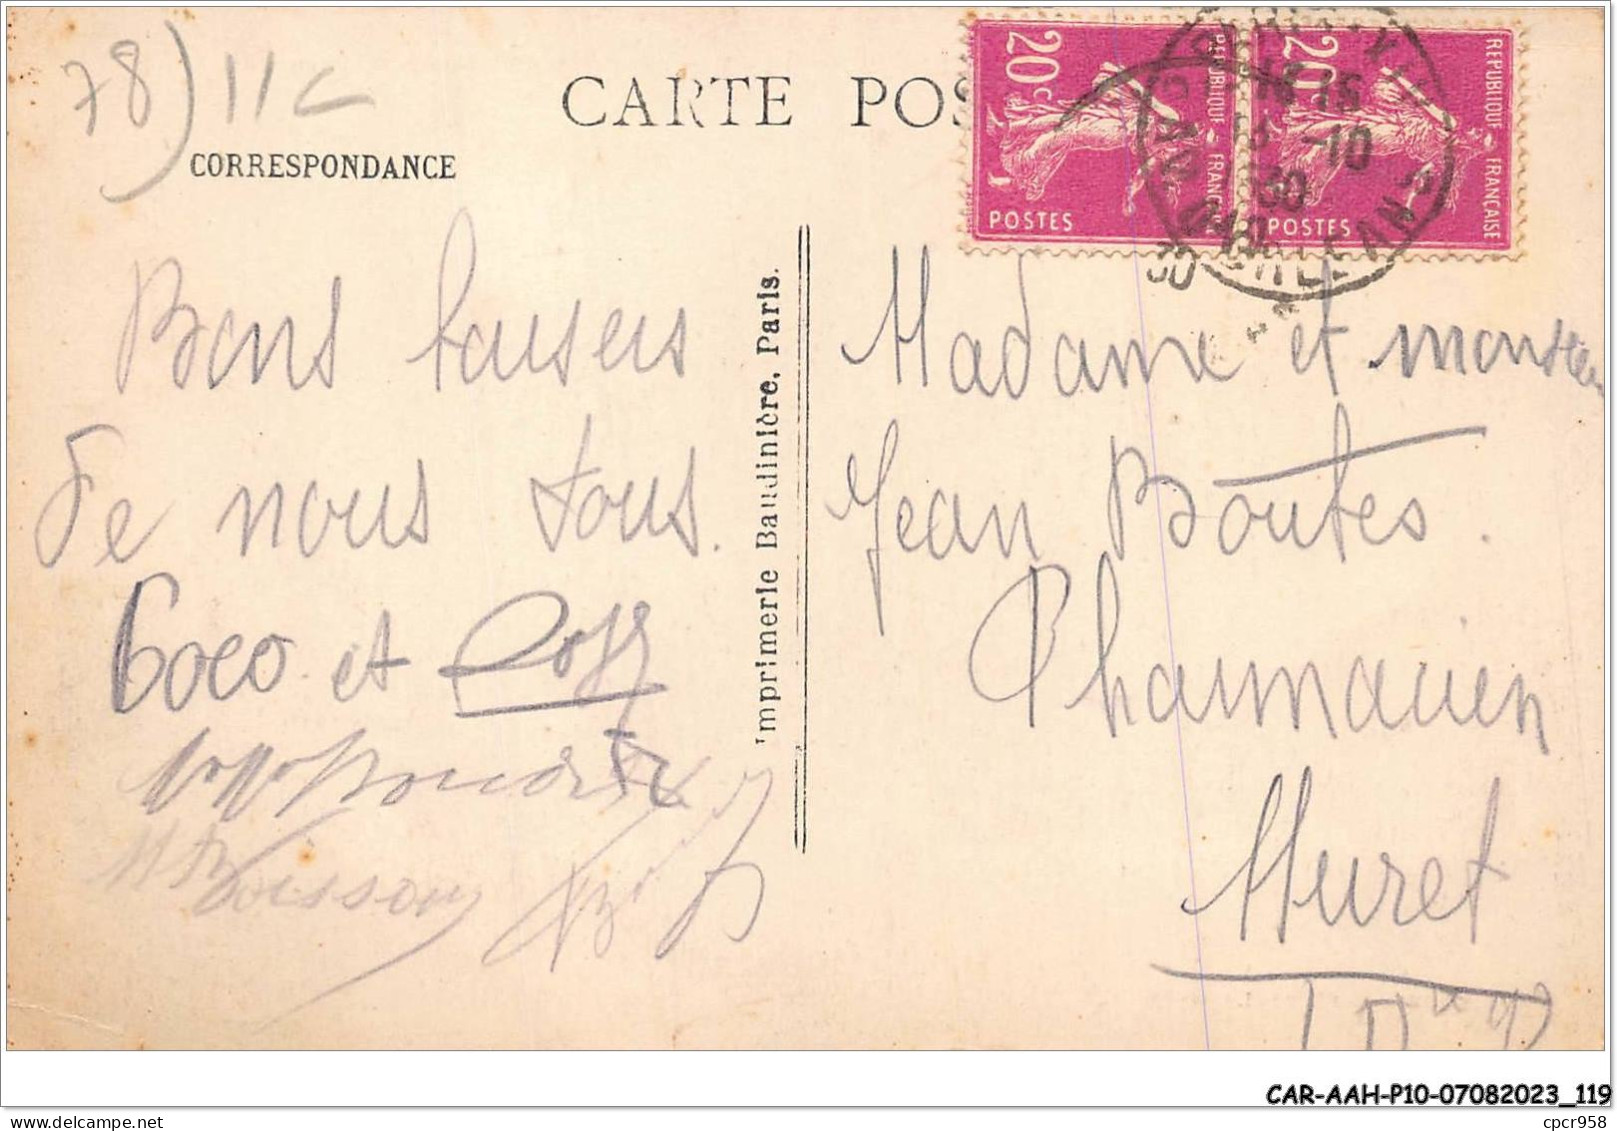 78) 11c
CARTE POS
CORRESPONDANCE
20c REPUBLIQUE FRANÇAISE POSTES
20c REPUBLIQUE FRANÇAISE POSTES
-10
30
Bons baisers
de nous tous.
Coco et
Voisson
Imprimerie Baudinière, Paris.
Madame et monsieu
Jean Boutes.
Pharmacien
Muret
CAR-AAH-P10-07082023_119
cpcr958